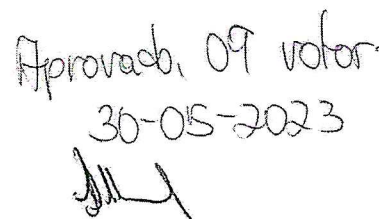 Aprovado, 09 votos
30-05-2023